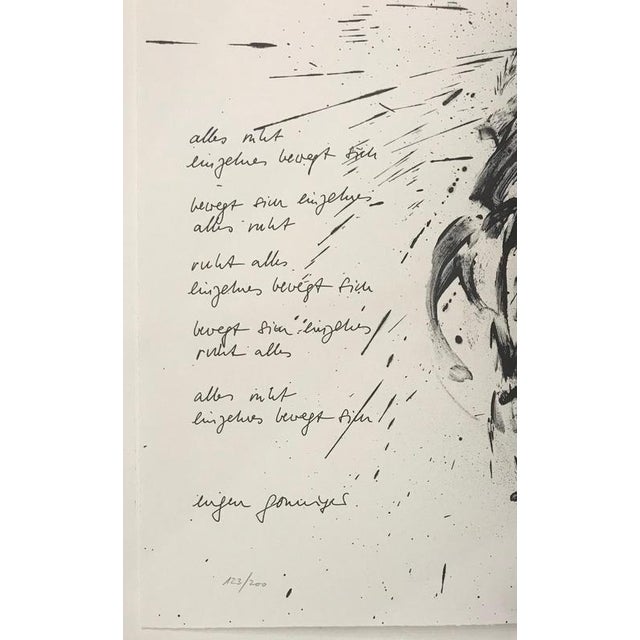 alles ruht
einzelnes bewegt sich
bewegt sich einzelnes
alles ruht
ruht alles
einzelnes bewegt sich
bewegt sich einzelnes
ruht alles
alles ruht
einzelnes bewegt sich
eugen gomringer
123/200